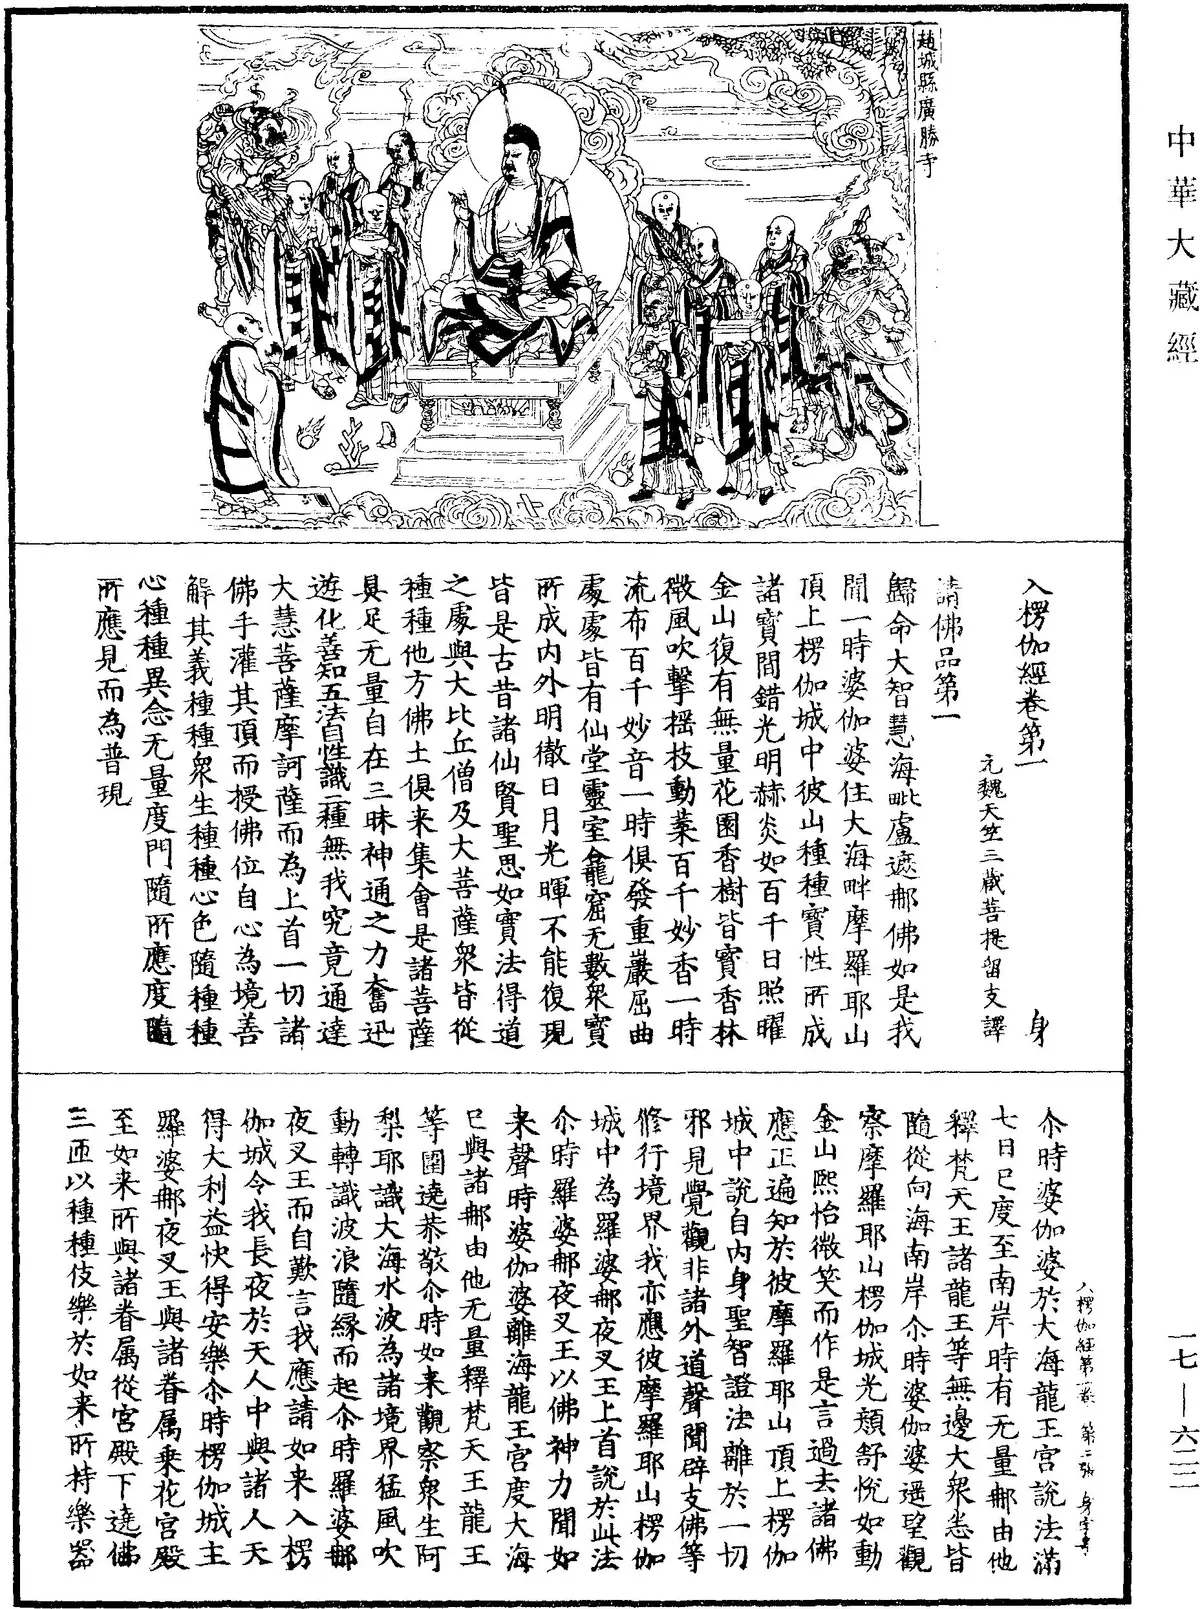 中華大藏經
趙城縣廣勝寺
入楞伽經卷第一　身
元魏天竺三藏菩提留支譯
請佛品第一
歸命大智慧海毗盧遮那佛如是我
聞一時婆伽婆住大海畔摩羅耶山
頂上楞伽城中彼山種種寶性所成
諸寶間錯光明赫炎如百千日照曜
金山復有無量花園香樹皆寶香林
微風吹擊搖枝動葉百千妙香一時
流布百千妙音一時俱發重巖屈曲
處處皆有仙堂靈室龕窟无數衆寶
所成内外明徹日月光暉不能復現
皆是古昔諸仙賢聖思如實法得道
之處與大比丘僧及大菩薩衆皆從
種種他方佛土俱来集會是諸菩薩
具足无量自在三昧神通之力奮迅
遊化善知五法自性識二種無我究竟通達
大慧菩薩摩訶薩而為上首一切諸
佛手灌其頂而授佛位自心為境善
解其義種種衆生種種心色隨種種
心種種異念无量度門隨所應度隨
所應見而為普現
尒時婆伽婆於大海龍王宫說法滿
七日已度至南岸時有无量那由他
釋梵天王諸龍王等無邊大衆悉皆
隨從向海南岸尒時婆伽婆遥望觀
察摩羅耶山楞伽城光顏舒悅如動
金山熙怡微笑而作是言過去諸佛
應正遍知於彼摩羅耶山頂上楞伽
城中說自内身聖智證法離於一切
邪見覺觀非諸外道聲聞辟支佛等
修行境界我亦應彼摩羅耶山楞伽
城中為羅婆那夜叉王上首說於此法
尒時羅婆那夜叉王以佛神力聞如
来聲時婆伽婆離海龍王宫度大海
已與諸那由他无量釋梵天王龍王
等圍遶恭敬尒時如来觀察衆生阿
梨耶識大海水波為諸境界猛風吹
動轉識波浪隨緣而起尒時羅婆那
夜叉王而自歎言我應請如来入楞
伽城令我長夜於天人中與諸人天
得大利益快得安樂尒時楞伽城主
羅婆那夜叉王與諸眷属乗花宫殿
至如来所與諸眷属從宫殿下遶佛
三匝以種種伎樂於如来所持樂器
入楞伽經第一卷　第二張　身字号
一七—六二二